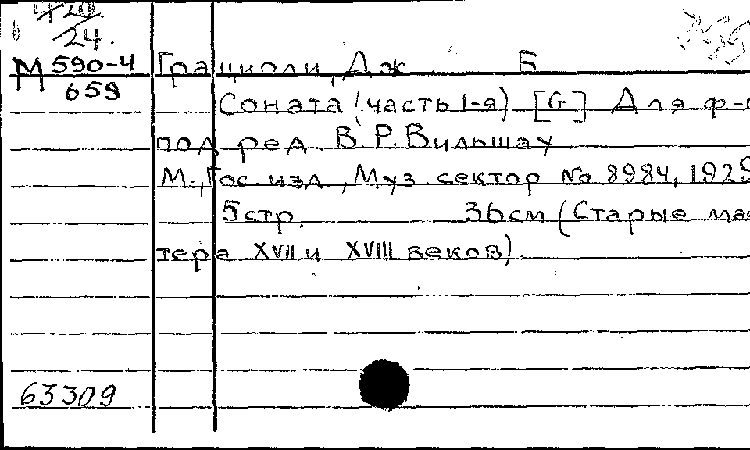 24.
М 590-4
659
Грациоли, Дж Б
Соната (часть I-я) [G] Для ф-
под ред. В.Р. Вильшау
М., Гос. изд., Муз. сектор № 8984, 1925
5 стр. 36 см (Старые мас
тера XVII и XVIII веков).
63309